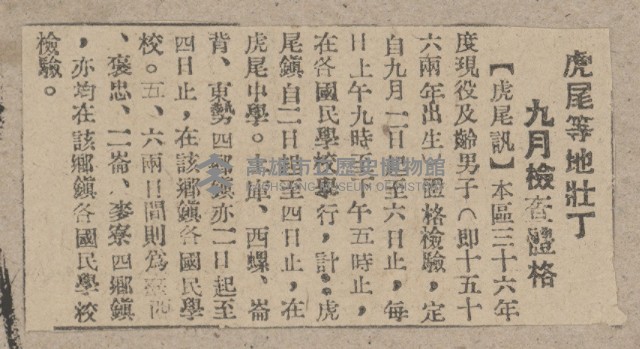 虎尾等地壯丁
九月檢查體格
【虎尾訊】本區三十六年
度現役及齡男子（卽十五十
六兩年出生）體格檢驗，定
自九月二日起至六日止，每
日上午九時至下午五時止，
在各國民學校舉行，計：虎
尾鎮自二日起至四日止，在
虎尾中學。土庫、西螺、崙
背、東勢四鄉鎮亦二日起至
四日止，在該鄉鎮各國民學
校。五、六兩日間則爲臺西
、褒忠、二崙、麥寮四鄉鎮
，亦均在該鄉鎮各國民學校
檢驗。
高雄市立歷史博物館
KAOHSIUNG MUSEUM OF HISTORY